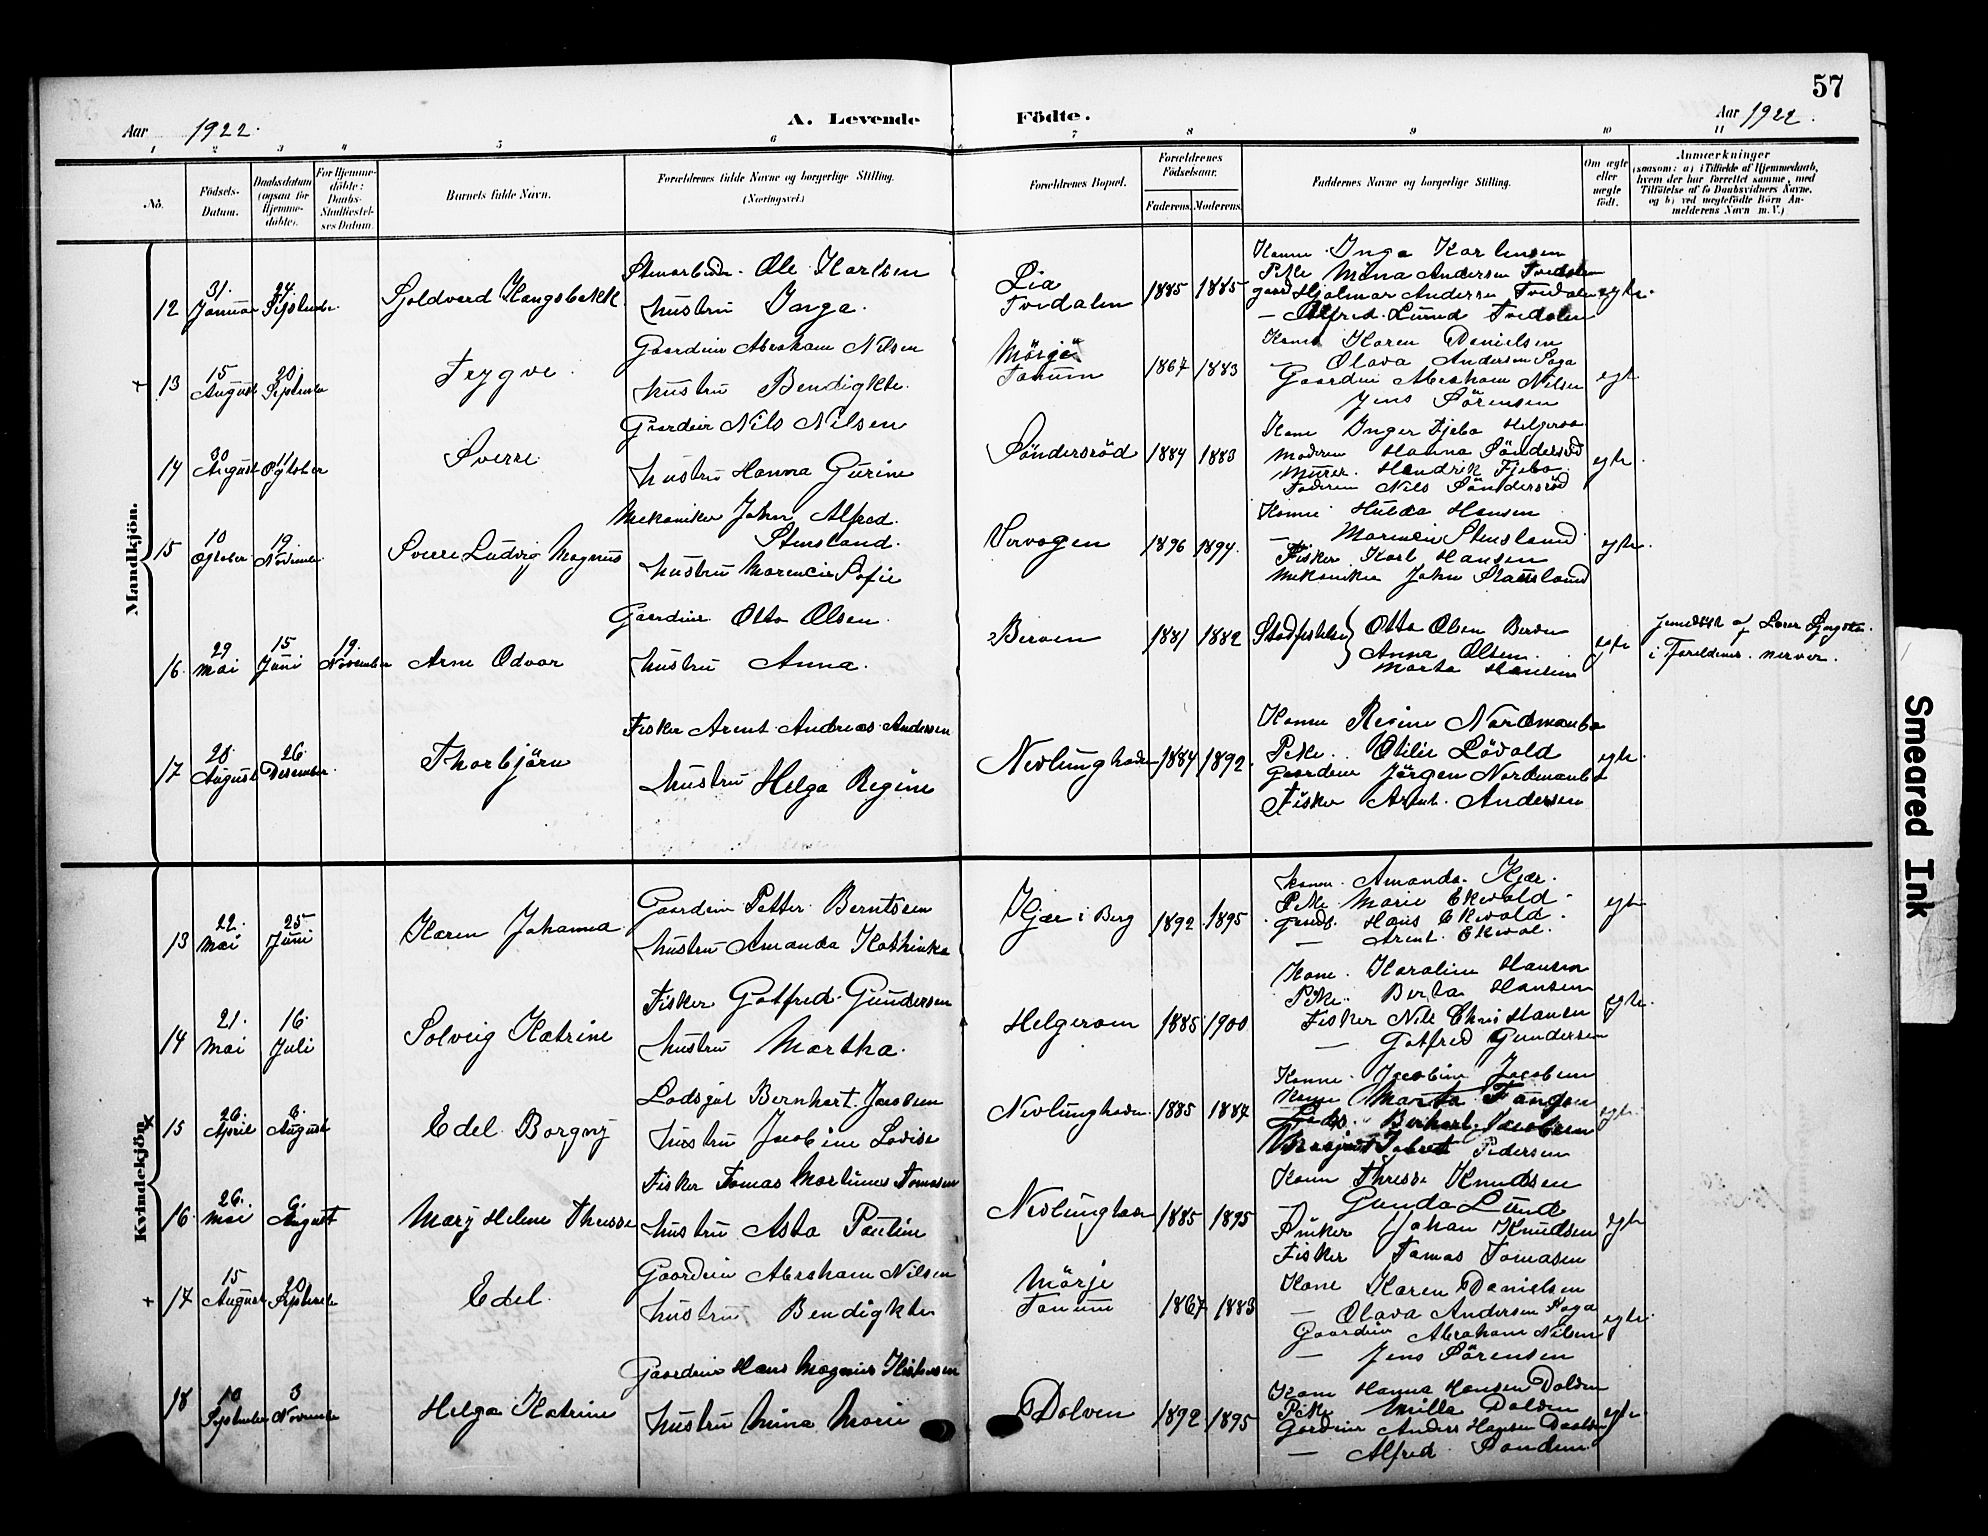 57
Aar 1922.
A. Levende Födte.
Aar 1922.
1 2 3 4 5 6 7 8 9 10 11
No.
Födsels-Datum.
Daabsdatum (ogsaa for Hjemme-döbte).
For Hjemme-döbte: Daabs-Stadfæstel-ses Datum.
Barnets fulde Navn.
Forældrenes fulde Navne og borgerlige Stilling. (Næringsvei.)
Forældrenes Bopæl.
Forældrenes Födselsaar.
Faderens. Moderens.
Faddernes Navne og borgerlige Stilling.
Om ægte eller uægte födt.
Anmærkninger
(saasom: a) i Tilfælde af Hjemmedaab, hvem der har forrettet samme, med Tilföielse af to Daabsvidners Navne, og b) ved uægtefödte Börn An-melderens Navn m. V.)
Mandkjön.
12 31. Januar 24. September
Stenarbeid. Ole Karlsen
hustru Inga.
Lia Tvedalen 1885 1885
Kone Inga Karlensen
Pike Mina Andersen Tvedalen
gaard Hjalmar Anderse Tvedalen
— Alfred Lund Tvedalen
egte.
+ 13 15 August 20. September
Trygve.
Gaardeier Abraham Nilsen
hustru Bendigkte.
Mörje Tanum 1867 1883
Kone Karen Danielsen
— Olava Andersen Saga
Gaardeier Abraham Nilsen
Jens Sörensen
egte
14 30 August 11 Ogtober
Sverre.
Gaardeier Nils Nilsen
hustru Hanna Gurine
Söndersröd 1884 1883
Kone Inger Fjebo Helgeroa
moderen Hanna Söndersröd
Murer. Hendrik Fjebo.
Faderen Nils Söndersröd
egte.
15 10 Ogtober 19. November
Sverre Ludvig Magnus
Mekaniker John Alfred Stensland.
hustru Marencie Sofie
Vervagen 1896 1894.
Konne Hulda Hansen
— Marencie Stensland
Fisker Karl Hansen
Mekaniker John Stensland
egte.
16. 29 Mai 15 Juni 19. November
Arne Odvar
Gaardeier Otto Olsen.
hustru Anna.
Barven 1881 1882
Stadfestelsen } Otto Olsen
Anna Olsen.
Marta Hansen
egte
17 28. August 26. Desember
Thorbjörn
Fisker Arent Andreas Andersen
hustru Helga Regine
Nevlunghavn 1884 1892.
Konne Regine Nordmanba
Pike. Otilie Lövald
Gaardeier Jörgen Nordmanba
Fisker Arent. Andersen
egte.
Kvindekjön
13 22. Mai 25 Juni
Karen Johanna
Gaardeier Petter Berntsen
hustru Amanda Kathinka
Kjær i Berg 1892 1895
konne. Amanda. Kjær.
Pike Marie Ekvald
gaardb. Hans Ekvald.
— Arent. Ekval.
egte
14 21. Mai 16. Juli
Solveig Katrine
Fisker Gotfred Gundersen
hustru Martha.
Helgeroen 1885 1900
Kone. Karoline Hansen
Pike. Berta Hansen
Fisker Nils Chris Hansen
— Gotfred Gundersen
egte.
15 26. April 6. August
Edel Borgny
Lodsgut Bernhart Jacobsen
hustru Jacobine Lovise
Nevlunghavn. 1885 1884
Konne. Jacobine Jacobsen
Kone Marta Tangen
Lods. Bernhart Jacobsen
Pedersen
egte.
16. 26. Mai 6 August
Mary Helene Therese
Fisker Tomas Martinus Tomasen
hustru Asta Pauline
Nevlunghavn 1885 1895
Kone Therese Knudsen
— Gunda Lund
Sniker Johan Knudsen
Fisker Tomas Tomasen
egte
+ 17 15 August 20 September
Edel.
Gaardeier Abraham Nilsen
hustru Bendigkte
Mörje Tanum 1867 1883
Kone Karen Danielsen
— Olava Andersen Saga
Gaardeier Abraham Nilsen
— Jens Sörensen
egte.
18 10 September 3 November
Helga Katrine
Gaardeier Hans Magnus
hustru Mina Marie
Dolven 1892 1895
Kone Hanna Hansen Dolven
Pike Milla Dolven
Gardeier Anders Hansen
— Alfred
egte
Smeared Ink